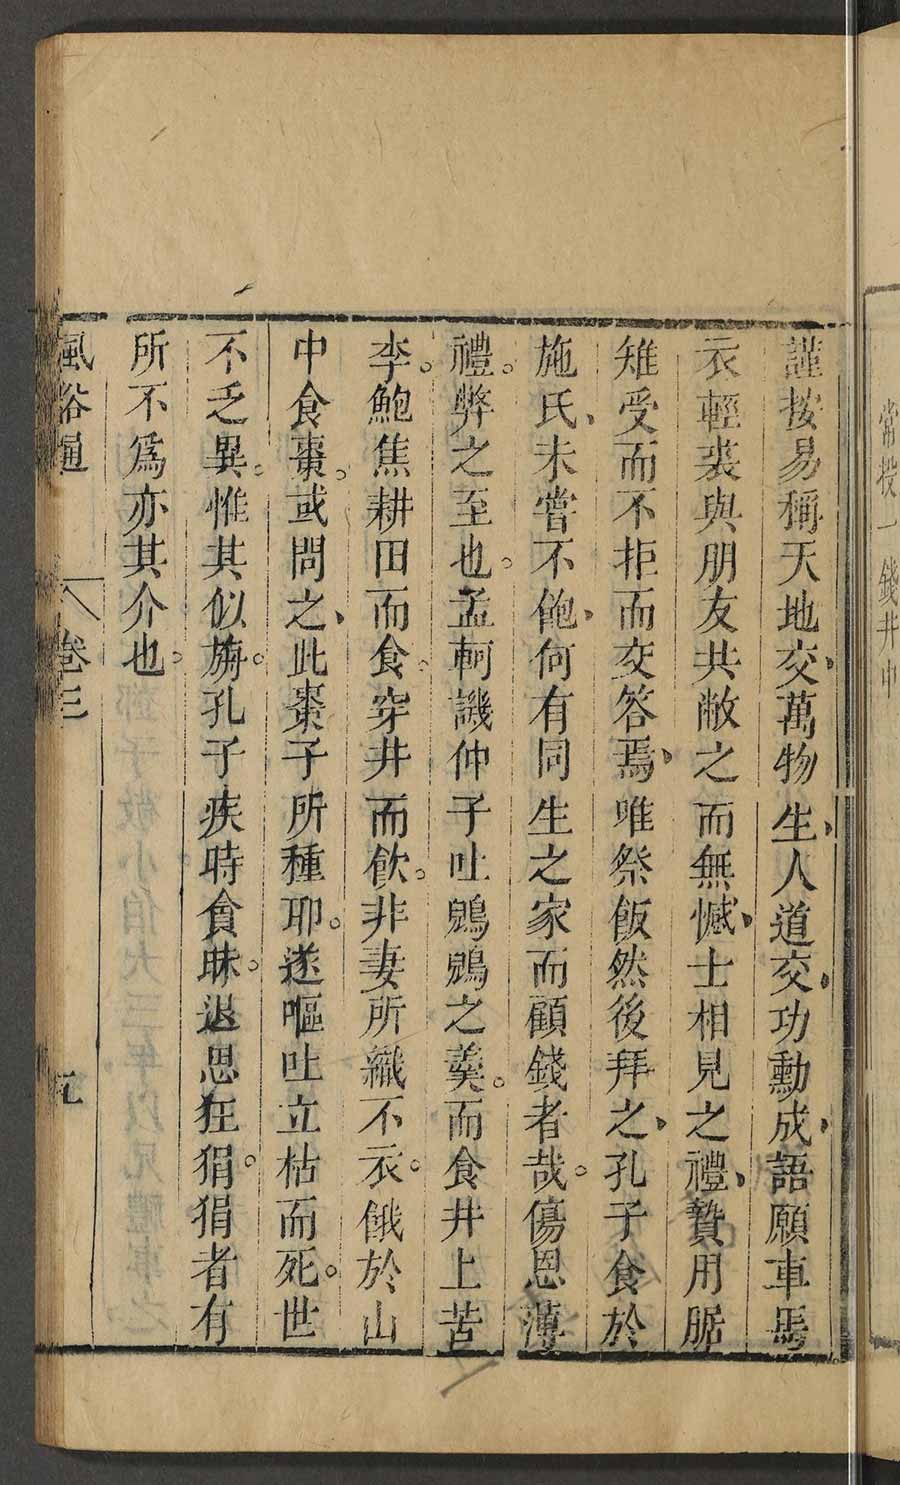 常投一錢井中
謹按易稱天地交萬物生人道交功勳成語願車馬
衣輕裘與朋友共敝之而無憾士相見之禮贄用腒
雉受而不拒而交答焉唯祭飯然後拜之孔子食於
施氏未嘗不飽何有同生之家而顧錢者哉傷恩薄
禮弊之至也孟軻譏仲子吐鶂鶂之羹而食井上苦
李鮑焦耕田而食穿井而飲非妻所織不衣餓於山
中食棗或問之此棗子所種耶遂嘔吐立枯而死世
不乏異惟其似旃孔子疾時貪昧退思狂狷狷者有
所不爲亦其介也
風俗通 卷三 五